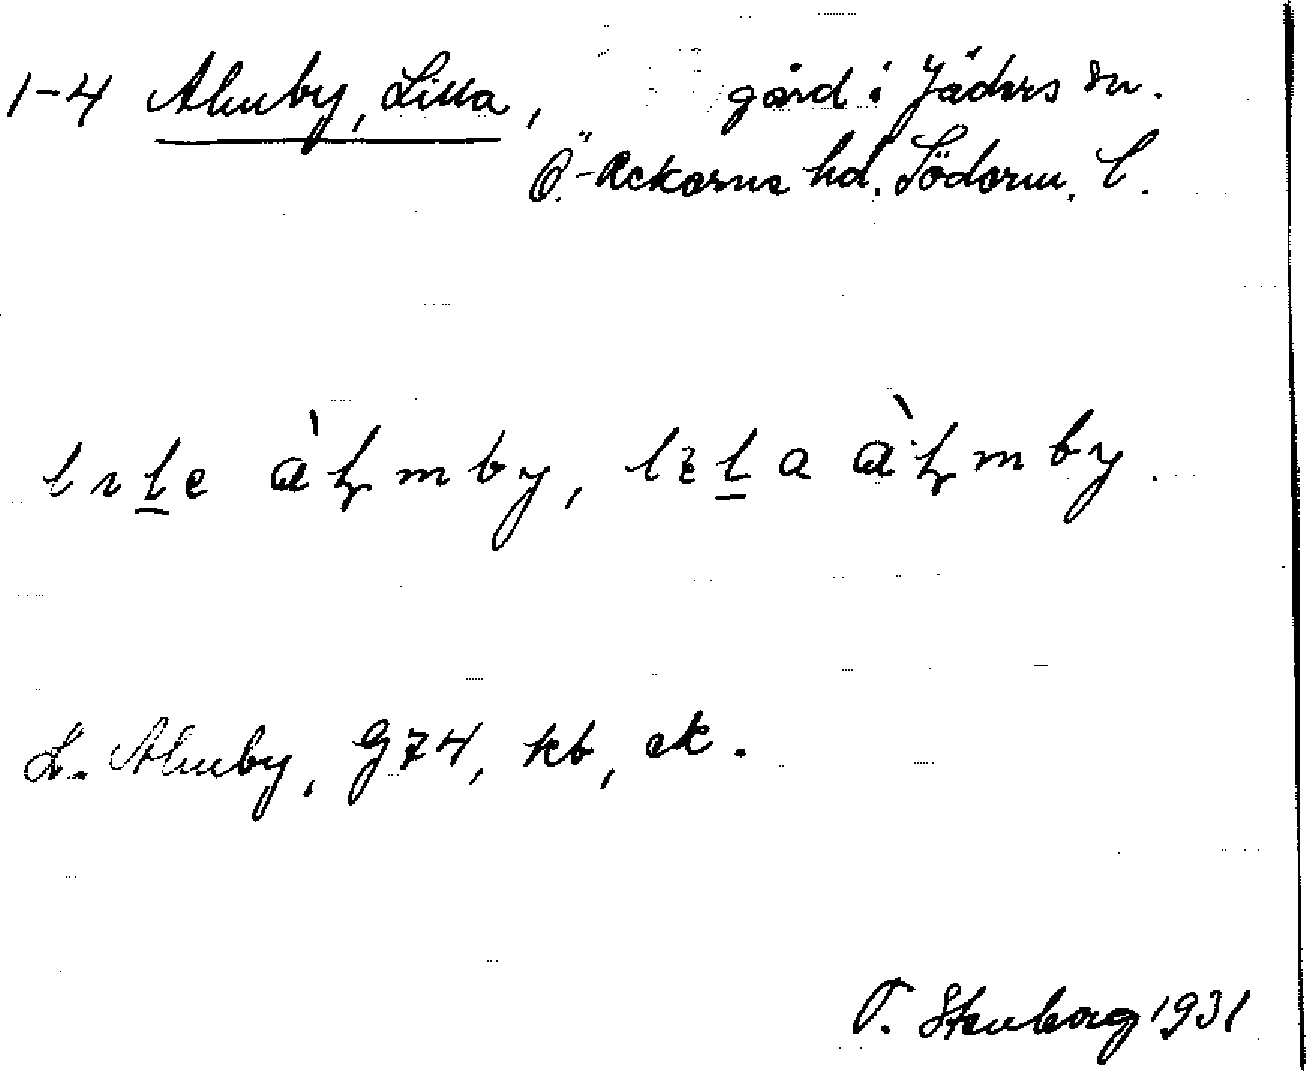 1-4 Almby, Lilla, gård i Jäders sn.
Ö.-Rekarne hd. Söderm. l.
lɩl̲e àlmby, lɛl̲a àlmby.
L. Almby, G74, kb, ek.
P. Stenborg 1931